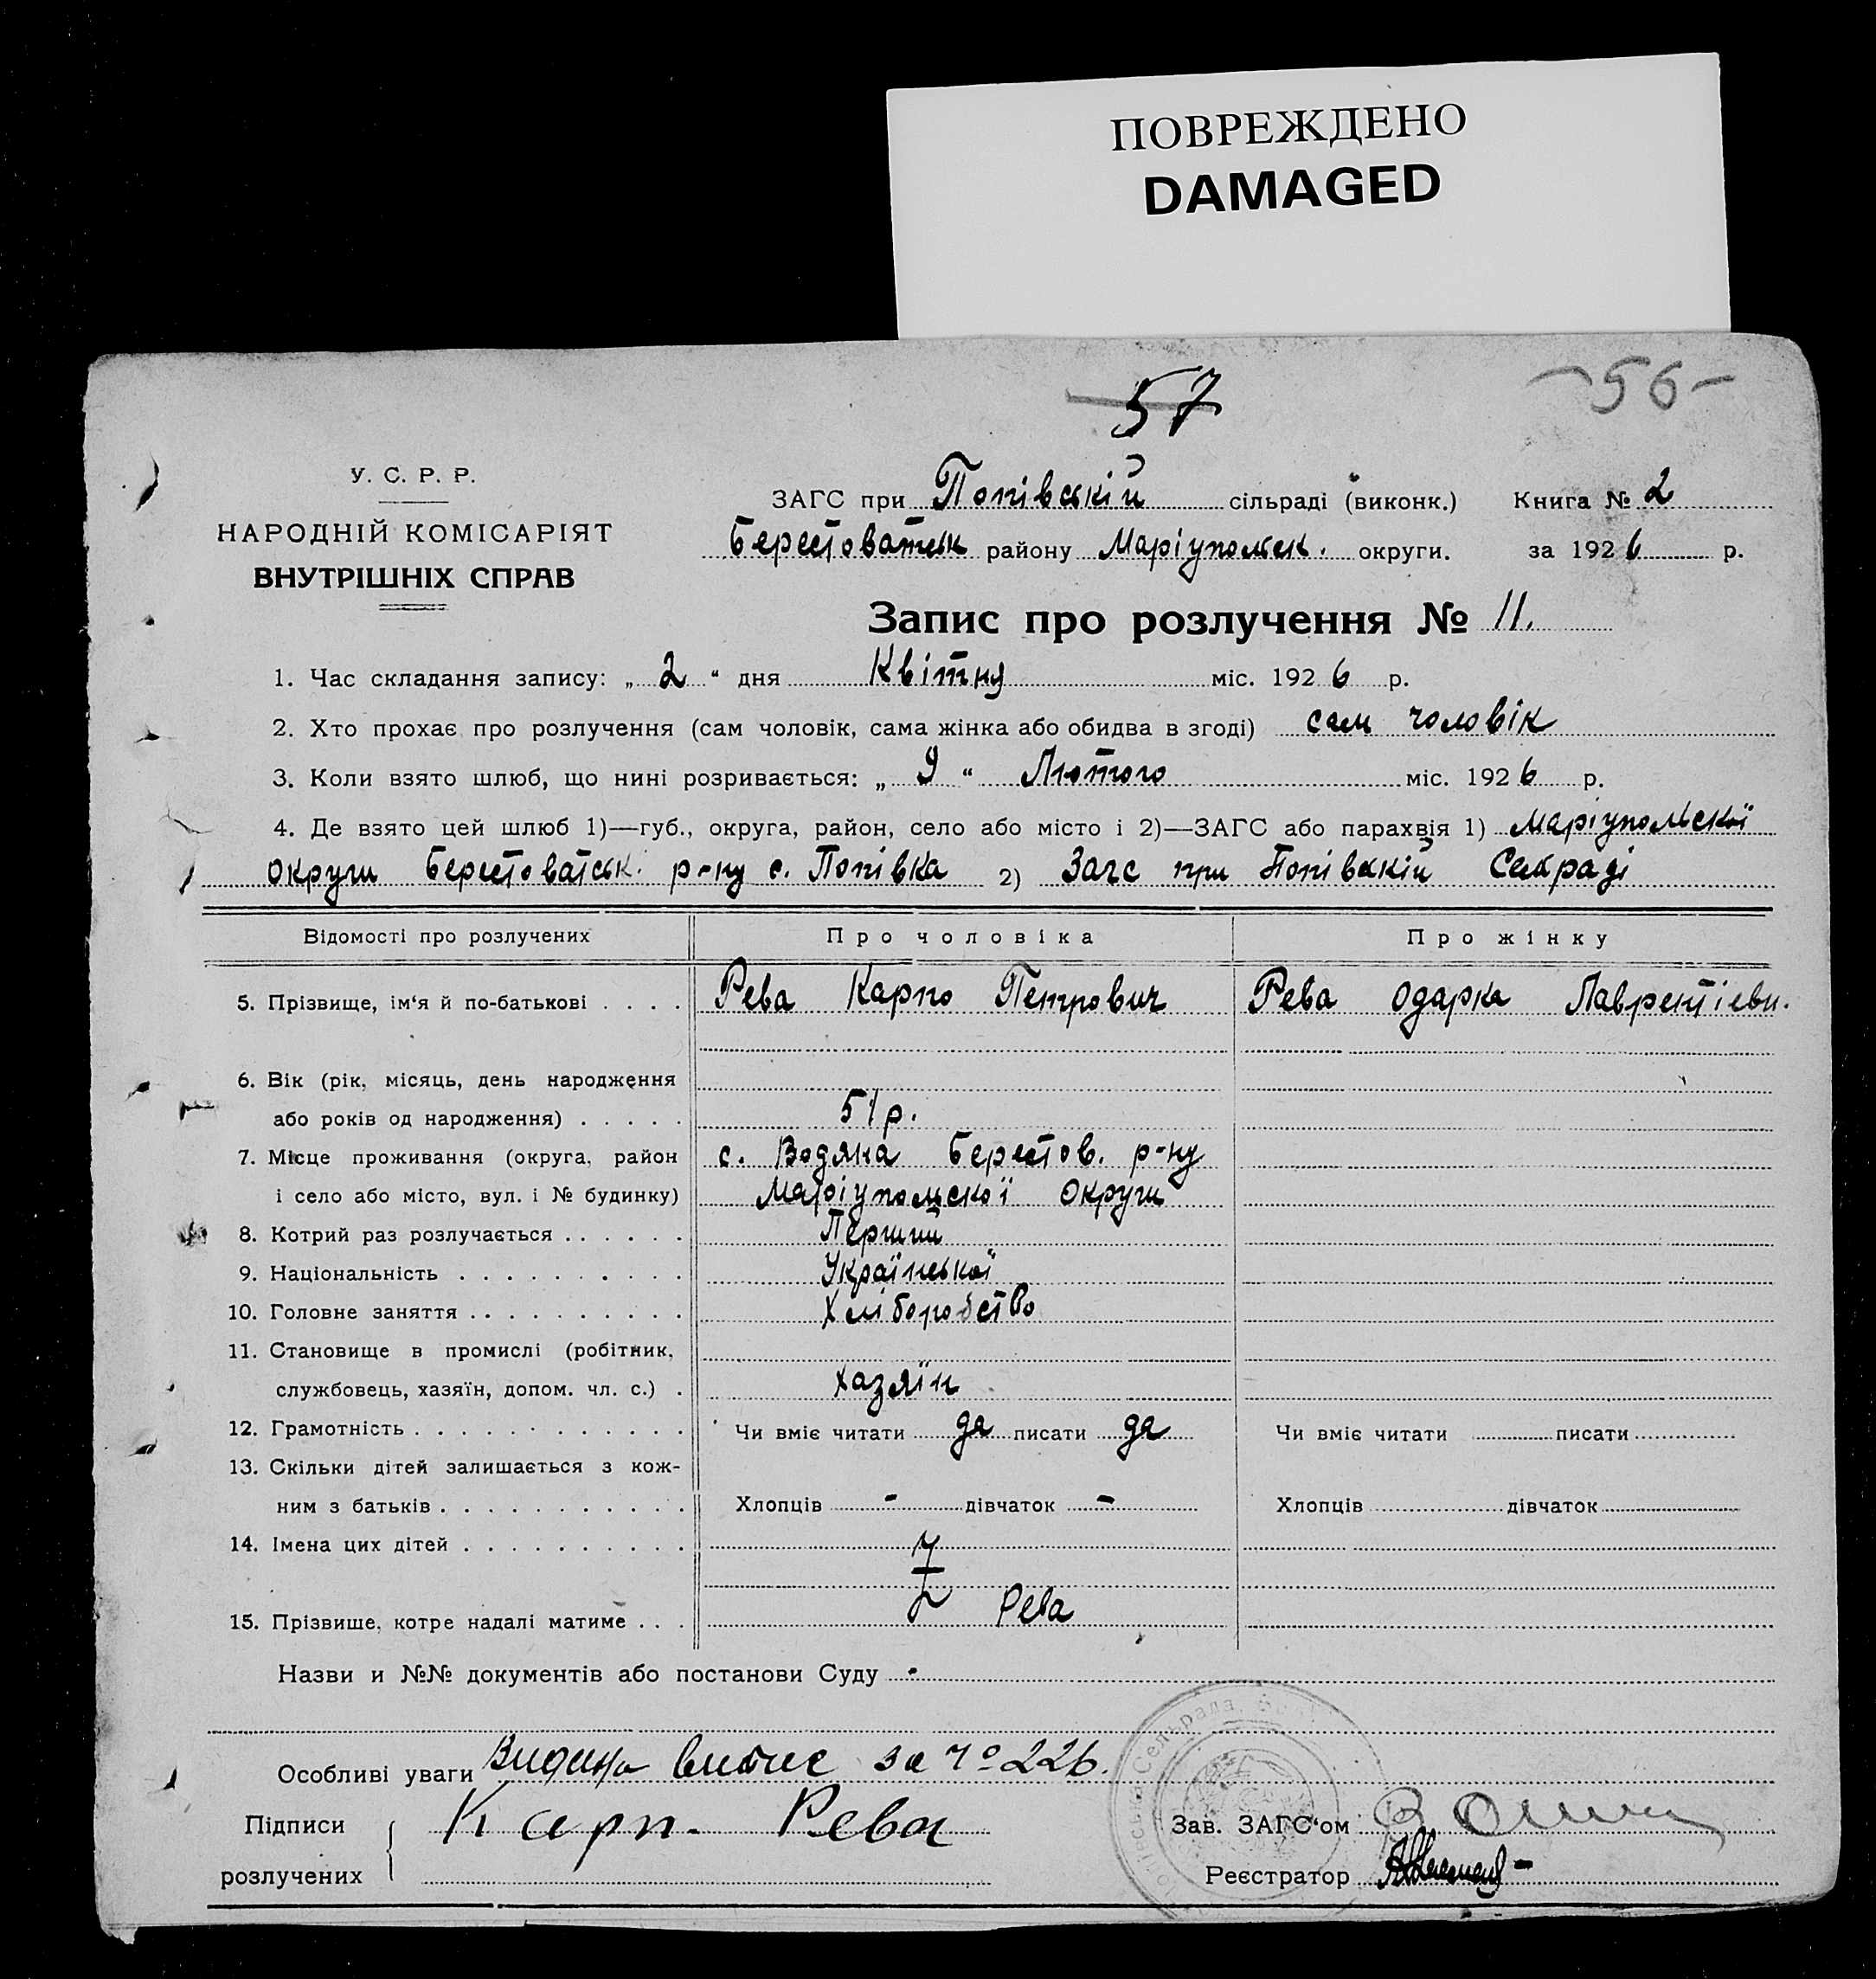 ПОВРЕЖДЕНО
DAMAGED
57
-56-
У. С. Р. Р.
НАРОДНІЙ КОМІСАРІЯТ
ВНУТРІШНІХ СПРАВ
ЗАГС при Попівській сільраді (виконк.) Книга № 2
Берестоватськ району Маріупольск. округи. за 1926 р.
Запис про розлучення № 11.
1. Час складання запису: „ 2 “ дня Квітня міс. 1926 р.
2. Хто прохає про розлучення (сам чоловік, сама жінка або обидва в згоді) сам чоловік
3. Коли взято шлюб, що нині розривається: „ 9 “ Лютого міс. 1926 р.
4. Де взято цей шлюб 1)—губ., округа, район, село або місто і 2)—ЗАГС або парахвія 1) Маріупольскої
округи Берестоватськ. р-ну с. Попівка 2) Загс при Попівскій Селраді
Відомості про розлучених Про чоловіка Про жінку
5. Прізвище, ім‘я й по-батькові . . . . Рева Карпо Петрович Рева Одарка Лаврентіевн.
6. Вік (рік, місяць, день народження
або років од народження) . . . . . 51 р.
7. Місце проживання (округа, район с. Водяна Берестов. р-ну
і село або місто, вул. і № будинку) Маріупольскої Округи
8. Котрий раз розлучається . . . . . . Перший
9. Національність . . . . . . . . . . Української
10. Головне заняття . . . . . . . . . . Хліборобство
11. Становище в промислі (робітник,
службовець, хазяїн, допом. чл. с.) . Хазяїн
12. Грамотність . . . . . . . . . . . . Чи вміє читати да писати да Чи вміє читати писати
13. Скільки дітей залишається з кож-
ним з батьків . . . . . . . . . . . Хлопців - дівчаток - Хлопців дівчаток
14. Імена цих дітей . . . . . . . . . .
15. Прізвище, котре надалі матиме . . . Рева
Назви и №№ документів або постанови Суду -
Особливі уваги Видана витяг за № 226.
Підписи Карп. Рева Зав. ЗАГС‘ом
розлучених Реєстратор